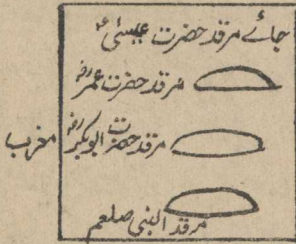 جائے مرقد حضرت عیسیٰؑ
مرقد حضرت عمرؓ
مرقد حضرت ابوبکرؓ
مغرب
مرقد النبی صلعم